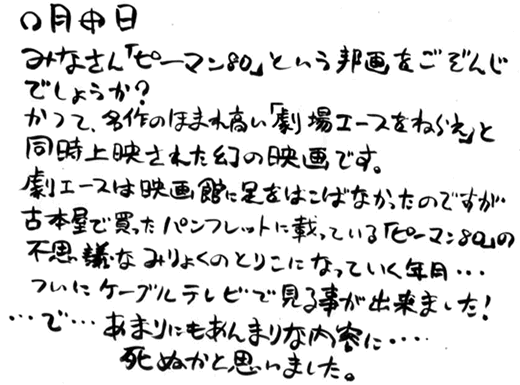 〇月申日
みなさん「ピーマン80」という邦画をごぞんじ
でしょうか?
かつて、名作のほまれ高い「劇場エースをねらえ」と
同時上映された幻の映画です。
劇エースは映画館に足をはこばなかったのですが
古本屋で買ったパンフレットに載っている「ピーマン80」の
不思議なみりょくのとりこになっていく年月・・・
ついにケーブルテレビで見る事が出来ました!
・・・で・・・あまりにもあんまりな内容に・・・・
死ぬかと思いました。